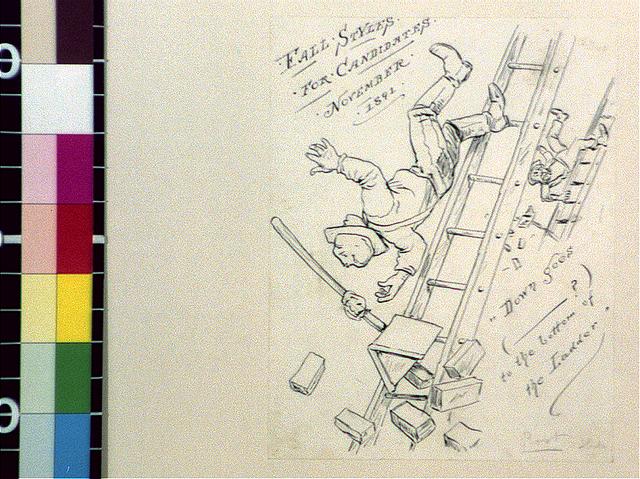 FALL STYLES
FOR CANDIDATES
NOVEMBER
1891
"DOWN GOES
( ? )
to the bottom of
the Ladder."